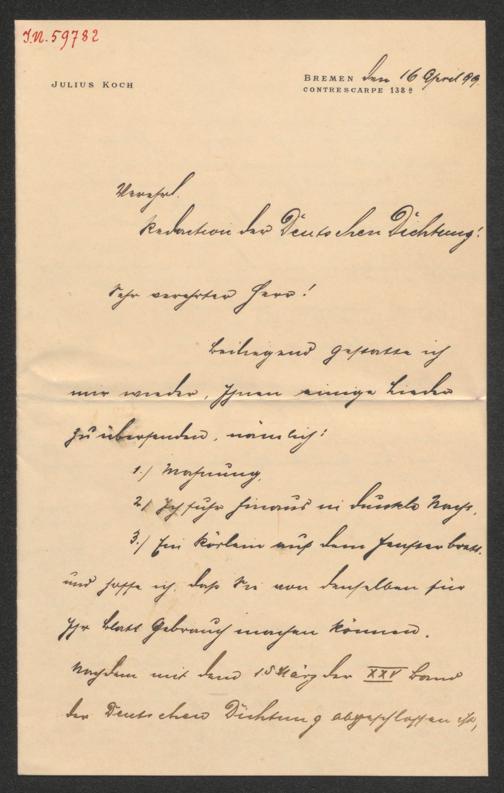 J.N. 59782
JULIUS KOCH
BREMEN den 16 April 99.
CONTRESCARPE 138
Verehrl.
Redaction der Deutschen Dichtung!
Sehr verehrter Herr!
Beiliegend gestatte ich
mir wieder, Ihnen einige Lieder
zu übersenden, nämlich:
1.) Mahnung,
2.) Ich fuhr hinaus in dunkle Nacht,
3.) Ein auf dem Fensterbrett.
und hoffe ich, daß Sie von denselben für
Ihr Blatt Gebrauch machen können.
Nachdem mit dem 15 März der XXV Band
der Deutschen Dichtung abgeschlossen ist,